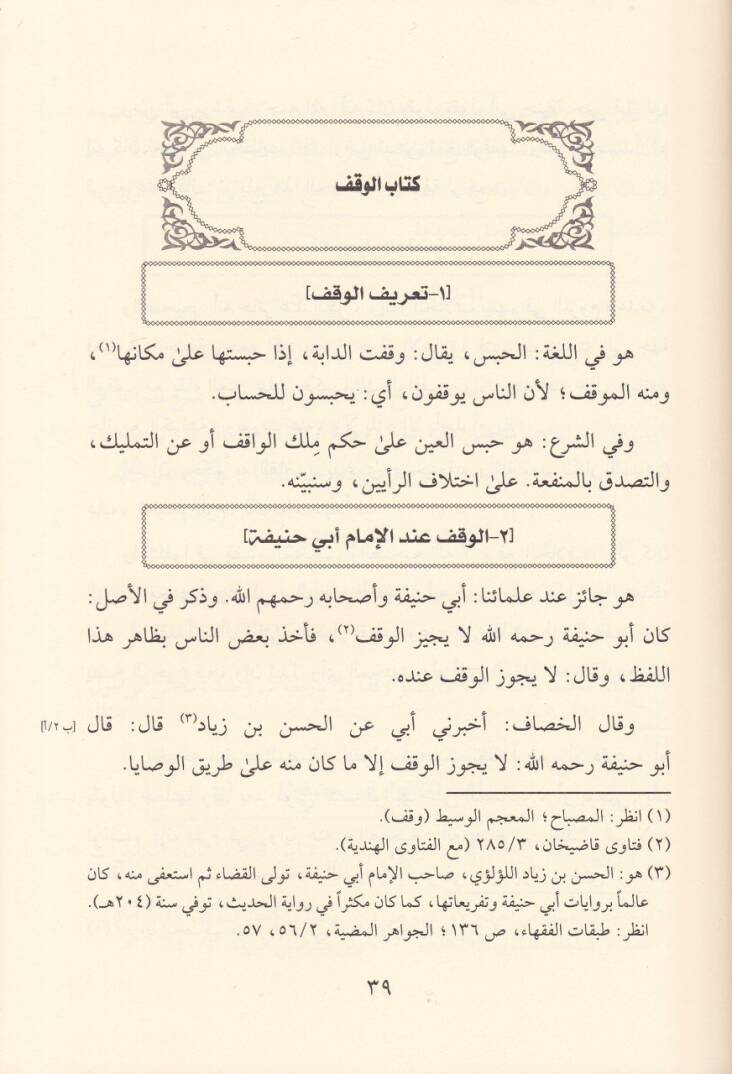 كتاب الوقف
[١-تعريف الوقف]
هو في اللغة: الحبس، يقال: وقفت الدابة، إذا حبستها علىٰ مكانها(١)،
ومنه الموقف؛ لأن الناس يوقفون، أي: يحبسون للحساب.
وفي الشرع: هو حبس العين علىٰ حكم مِلك الواقف أو عن التمليك،
والتصدق بالمنفعة. علىٰ اختلاف الرأيين، وسنبيّنه.
[٢-الوقف عند الإمام أبي حنيفة]
هو جائز عند علمائنا: أبي حنيفة وأصحابه رحمهم الله. وذكر في الأصل:
كان أبو حنيفة رحمه الله لا يجيز الوقف(٢)، فأخذ بعض الناس بظاهر هذا
اللفظ، وقال: لا يجوز الوقف عنده.
وقال الخصاف: أخبرني أبي عن الحسن بن زياد(٣) قال: قال [ب ٢/أ]
أبو حنيفة رحمه الله: لا يجوز الوقف إلا ما كان منه علىٰ طريق الوصايا.
(١) انظر: المصباح؛ المعجم الوسيط (وقف).
(٢) فتاوى قاضيخان، ٢٨٥/٣ (مع الفتاوى الهندية).
(٣) هو: الحسن بن زياد اللؤلؤي، صاحب الإمام أبي حنيفة، تولى القضاء ثم استعفى منه، كان
عالماً بروايات أبي حنيفة وتفريعاتها، كما كان مكثراً في رواية الحديث، توفي سنة (٢٠٤هـ).
انظر: طبقات الفقهاء، ص ١٣٦؛ الجواهر المضية، ٥٦/٢، ٥٧.
٣٩